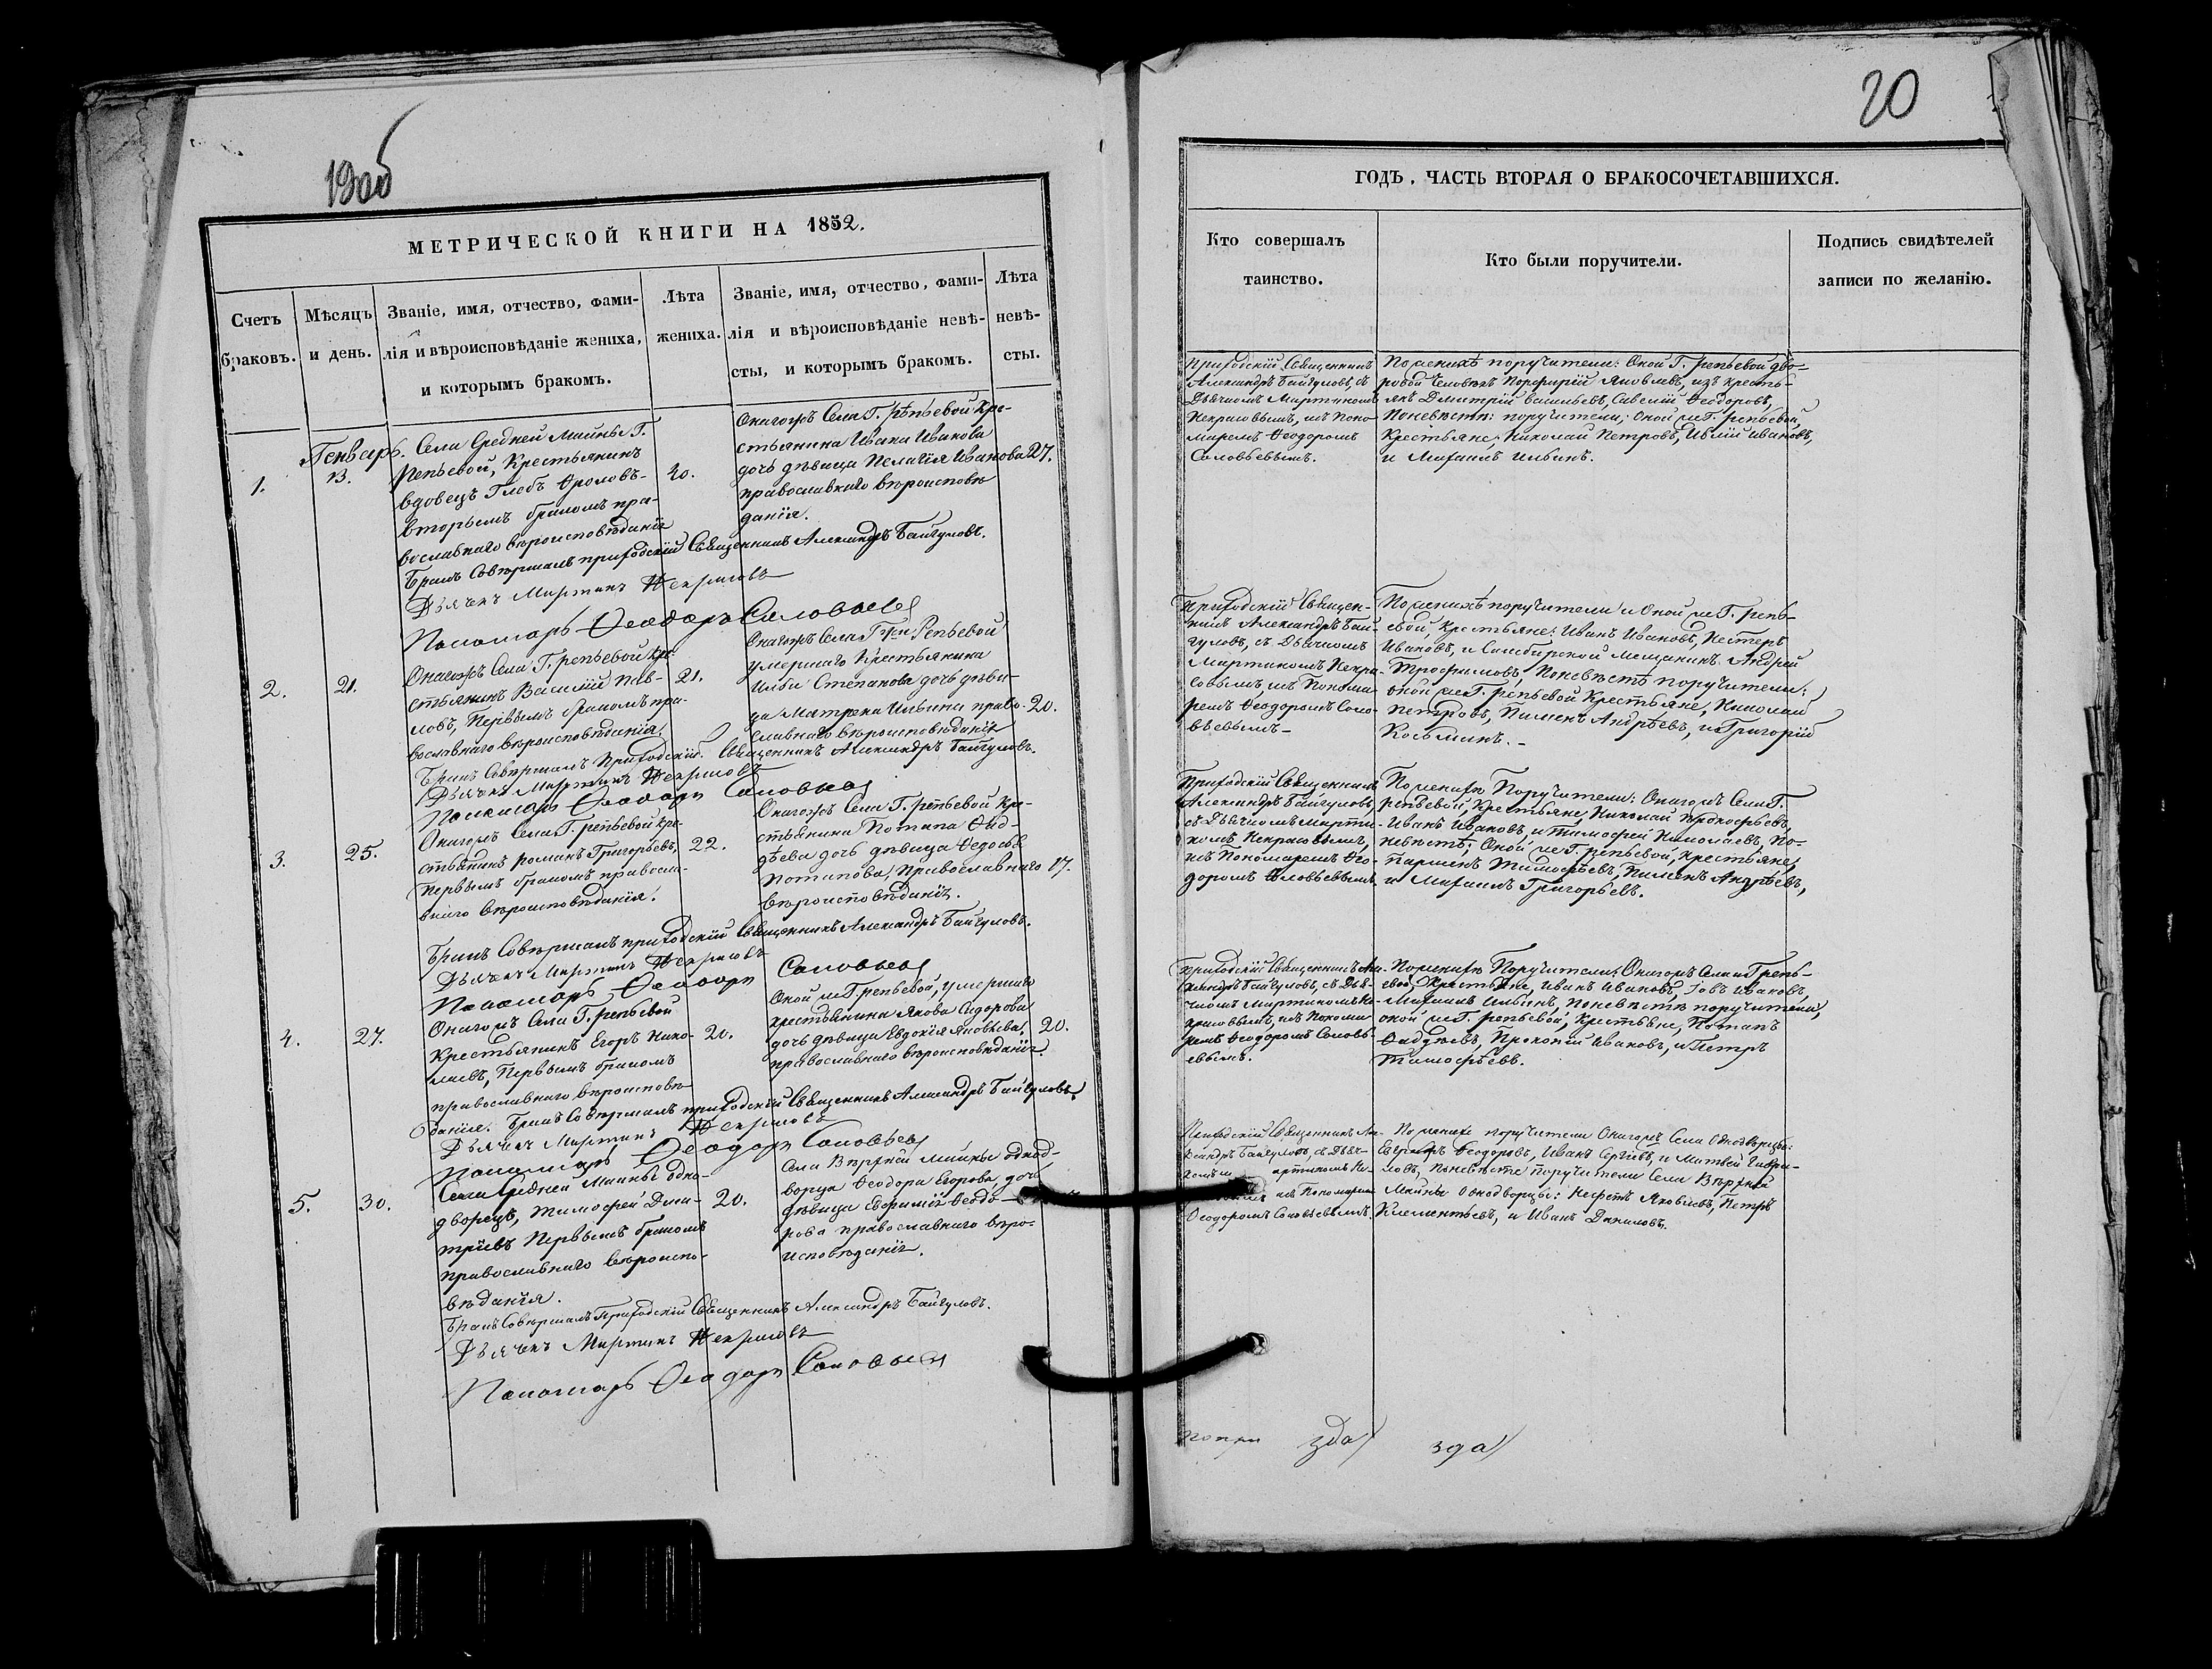 19об
МЕТРИЧЕСКОЙ КНИГИ НА 1852.
Счетъ браковъ.
Мѣсяцъ и день.
Званіе, имя, отчество, фами-
лія и вѣроисповѣданіе жениха,
и которымъ бракомъ.
Лѣта
жениха.
Званіе, имя, отчество, фами-
лія и вѣроисповѣданіе невѣ-
сты, и которымъ бракомъ.
Лѣта
невѣ-
сты.
Генварь.
1.
13.
Села Средней Майны Г.
Репьевой, Крестьянинъ
вдовецъ Глебъ Фроловъ
вторымъ бракомъ пра-
вославнаго вѣроисповѣданія
40.
Онагожъ Села Г. Рѣпьевой Кре-
стьянина Ивана Иванова
дочь дѣвица Пелагія Иванова
православнаго вѣроисповѣ
данія.
27.
Бракъ Совѣршалъ приходскій Священникъ Александръ Байгуловъ.
Дьячекъ Мартинъ Некрасовъ
Пономарь Феодоръ Соловьевъ
2.
21.
Онагожъ Села Г. репьевой Кре-
стьянинъ Василій Пав-
ловъ, Первымъ бракомъ пра-
вославнаго вѣроисповѣданія,
21.
Онагожъ Села Г-жи Репьевой
умершаго Крестьянина
Ильи Степанова дочь дѣви-
ца Матрена Ильина право-
славнаго вѣроисповѣданія
20.
Бракъ Совѣршалъ Приходскій Священникъ Александръ Байгуловъ.
Дьячекъ Мартинъ Некрасовъ
Пономарь Феодоръ Соловьевъ
3.
25.
Онагожъ Села Г. репьевой Кре-
стьянинъ романъ Григорьевъ,
Первымъ бракомъ правосла-
внаго вѣроисповѣданія.
22.
Онагожъ Села Г. репьевой Кре-
стьянина Потапа Авд-
ѣева дочь дѣвица Федосья
Потапова, Православнаго
вѣроисповѣданія.
17.
Бракъ Совѣршалъ приходскій Священникъ Александръ Байгуловъ.
Дьячекъ Мартинъ Некрасовъ
Пономарь Феодоръ Соловьевъ
4.
27.
Онагожъ Села Г. репьевой
Крестьянинъ Егоръ Нико-
лаевъ, Первымъ бракомъ
православнаго вѣроисповѣ
данія.
20.
Оной же Г. репьевой, умершаго
крестьянина Якова Сидорова
дочь дѣвица Евдокія Яковлева,
православнаго вѣроисповѣданія.
20.
Бракъ Совѣршалъ приходскій Священникъ Александръ Байгуловъ.
Дьячекъ Мартинъ Некрасовъ
Пономарь Феодоръ Соловьевъ
5.
30.
Села Средней Майны одно-
дворецъ, Тимофей Дми-
тріевъ Первымъ бракомъ
православнаго вѣроиспо-
вѣданія.
20.
Села Вѣрхней Майны однод-
ворца Феодора Егорова, дочь
дѣвица Ефимія Феодо-
рова православнаго вѣро-
исповѣданія.
Бракъ Совѣршалъ Приходскій Священникъ Александръ Байгуловъ.
Дьячекъ Мартинъ Некрасовъ
Пономарь Феодоръ Соловьевъ
20
ГОДЪ, ЧАСТЬ ВТОРАЯ О БРАКОСОЧЕТАВШИХСЯ.
Кто совершалъ
таинство.
Кто были поручители.
Подпись свидѣтелей
записи по желанію.
Приходскій Священникъ
Александръ Байгуловъ, съ
Дьячкомъ Мартиномъ
Некрасовымъ, и съ Поно
маремъ Феодоромъ
Соловьевымъ.
По женихѣ поручители: Оной Г. репьевой дво-
ровой человѣкъ Порфирій Яковлевъ, изъ кресть-
янъ Дмитрій Васильевъ, Савелій Феодоровъ,
По невѣстѣ: поручители, Оной же Г. репьевой,
Крестьяне; Николай Петровъ, Иванъ Ивановъ,
и Михаилъ Ильинъ.
Приходскій Священ-
никъ Александръ Бай-
гуловъ, съ Дьячкомъ
Мартиномъ Некра-
совымъ, и съ Понома
ремъ Феодоромъ Соло-
вьевымъ.
По женихѣ поручители и Оной же Г. репь-
евой, Крестьяне: Иванъ Ивановъ, Нестеръ
Ивановъ, и Симбирской мещанинъ Андрей
Трофимовъ, По невѣстѣ поручители:
оной же Г. репьевой Крестьяне, Николай
Петровъ, Пименъ Андрѣевъ, и Григорій
Косьминъ.
Приходскій Священникъ
Александръ Байгуловъ,
съ Дьячкомъ Марти-
номъ Некрасовымъ,
и съ Пономаремъ Фео-
доромъ Соловьевымъ.
По женихѣ Поручители: Онагожъ Села Г.
репьевой, Крестьяне, Николай Прокофьевъ,
Иванъ Ивановъ, и Тимофей Николаевъ, По-
невѣстѣ; Оной же Г. репьевой, Крестьяне,
Парменъ Тимофѣевъ, Пименъ Андрѣевъ,
и Михаилъ Григорьевъ.
Приходскій Священникъ Але-
ксандръ Байгуловъ, съ Дья-
чкомъ Мартиномъ Не-
красовымъ, и съ Понома
ремъ Феодоромъ Соловь-
евымъ.
По женихѣ Поручители: Онагожъ Села Г. репь-
евой, Крестьяне, Иванъ Ивановъ, Іовъ Ивановъ,
Михаилъ Ильинъ, По невѣстѣ поручители,
оной же Г. репьевой, Крестьяне, Потапъ
Авдѣевъ, Прокопій Ивановъ, и Петръ
Тимофѣевъ.
Приходскій Священникъ Але-
ксандръ Байгуловъ, съ Дьяч-
комъ артиномъ Не-
и съ Пономаремъ
Феодоромъ Соловьевымъ.
По женихѣ поручители Онагожъ Села Однодворцы:
Феодоровъ, Иванъ Сергѣевъ, и Матвѣй Гаври-
ловъ, По невѣстѣ поручители Села Вѣрхней
Майны Однодворцы: Яковлевъ, Петръ
Клементьевъ, и Иванъ Даниловъ.